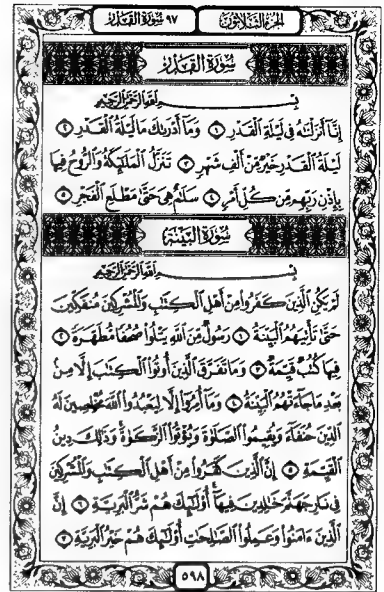 ٩٧ سُورَةُ القَدْرِ الجُزْءُ الثَّلَاثُونَ
سُورَةُ القَدْرِ
بِسْمِ اللَّهِ الرَّحْمَٰنِ الرَّحِيمِ
إِنَّآ أَنزَلْنَٰهُ فِى لَيْلَةِ ٱلْقَدْرِ ١ وَمَآ أَدْرَىٰكَ مَا لَيْلَةُ ٱلْقَدْرِ ٢
لَيْلَةُ ٱلْقَدْرِ خَيْرٌ مِّنْ أَلْفِ شَهْرٍ ٣ تَنَزَّلُ ٱلْمَلَٰٓئِكَةُ وَٱلرُّوحُ فِيهَا
بِإِذْنِ رَبِّهِم مِّن كُلِّ أَمْرٍ ٤ سَلَٰمٌ هِىَ حَتَّىٰ مَطْلَعِ ٱلْفَجْرِ ٥
سُورَةُ البَيِّنَةِ
بِسْمِ اللَّهِ الرَّحْمَٰنِ الرَّحِيمِ
لَمْ يَكُنِ ٱلَّذِينَ كَفَرُوا۟ مِنْ أَهْلِ ٱلْكِتَٰبِ وَٱلْمُشْرِكِينَ مُنفَكِّينَ
حَتَّىٰ تَأْتِيَهُمُ ٱلْبَيِّنَةُ ١ رَسُولٌ مِّنَ ٱللَّهِ يَتْلُوا۟ صُحُفًا مُّطَهَّرَةً ٢
فِيهَا كُتُبٌ قَيِّمَةٌ ٣ وَمَا تَفَرَّقَ ٱلَّذِينَ أُوتُوا۟ ٱلْكِتَٰبَ إِلَّا مِنۢ
بَعْدِ مَا جَآءَتْهُمُ ٱلْبَيِّنَةُ ٤ وَمَآ أُمِرُوٓا۟ إِلَّا لِيَعْبُدُوا۟ ٱللَّهَ مُخْلِصِينَ لَهُ
ٱلدِّينَ حُنَفَآءَ وَيُقِيمُوا۟ ٱلصَّلَوٰةَ وَيُؤْتُوا۟ ٱلزَّكَوٰةَ وَذَٰلِكَ دِينُ
ٱلْقَيِّمَةِ ٥ إِنَّ ٱلَّذِينَ كَفَرُوا۟ مِنْ أَهْلِ ٱلْكِتَٰبِ وَٱلْمُشْرِكِينَ
فِى نَارِ جَهَنَّمَ خَٰلِدِينَ فِيهَآ أُو۟لَٰٓئِكَ هُمْ شَرُّ ٱلْبَرِيَّةِ ٦ إِنَّ
ٱلَّذِينَ ءَامَنُوا۟ وَعَمِلُوا۟ ٱلصَّٰلِحَٰتِ أُو۟لَٰٓئِكَ هُمْ خَيْرُ ٱلْبَرِيَّةِ ٧
٥٩٨